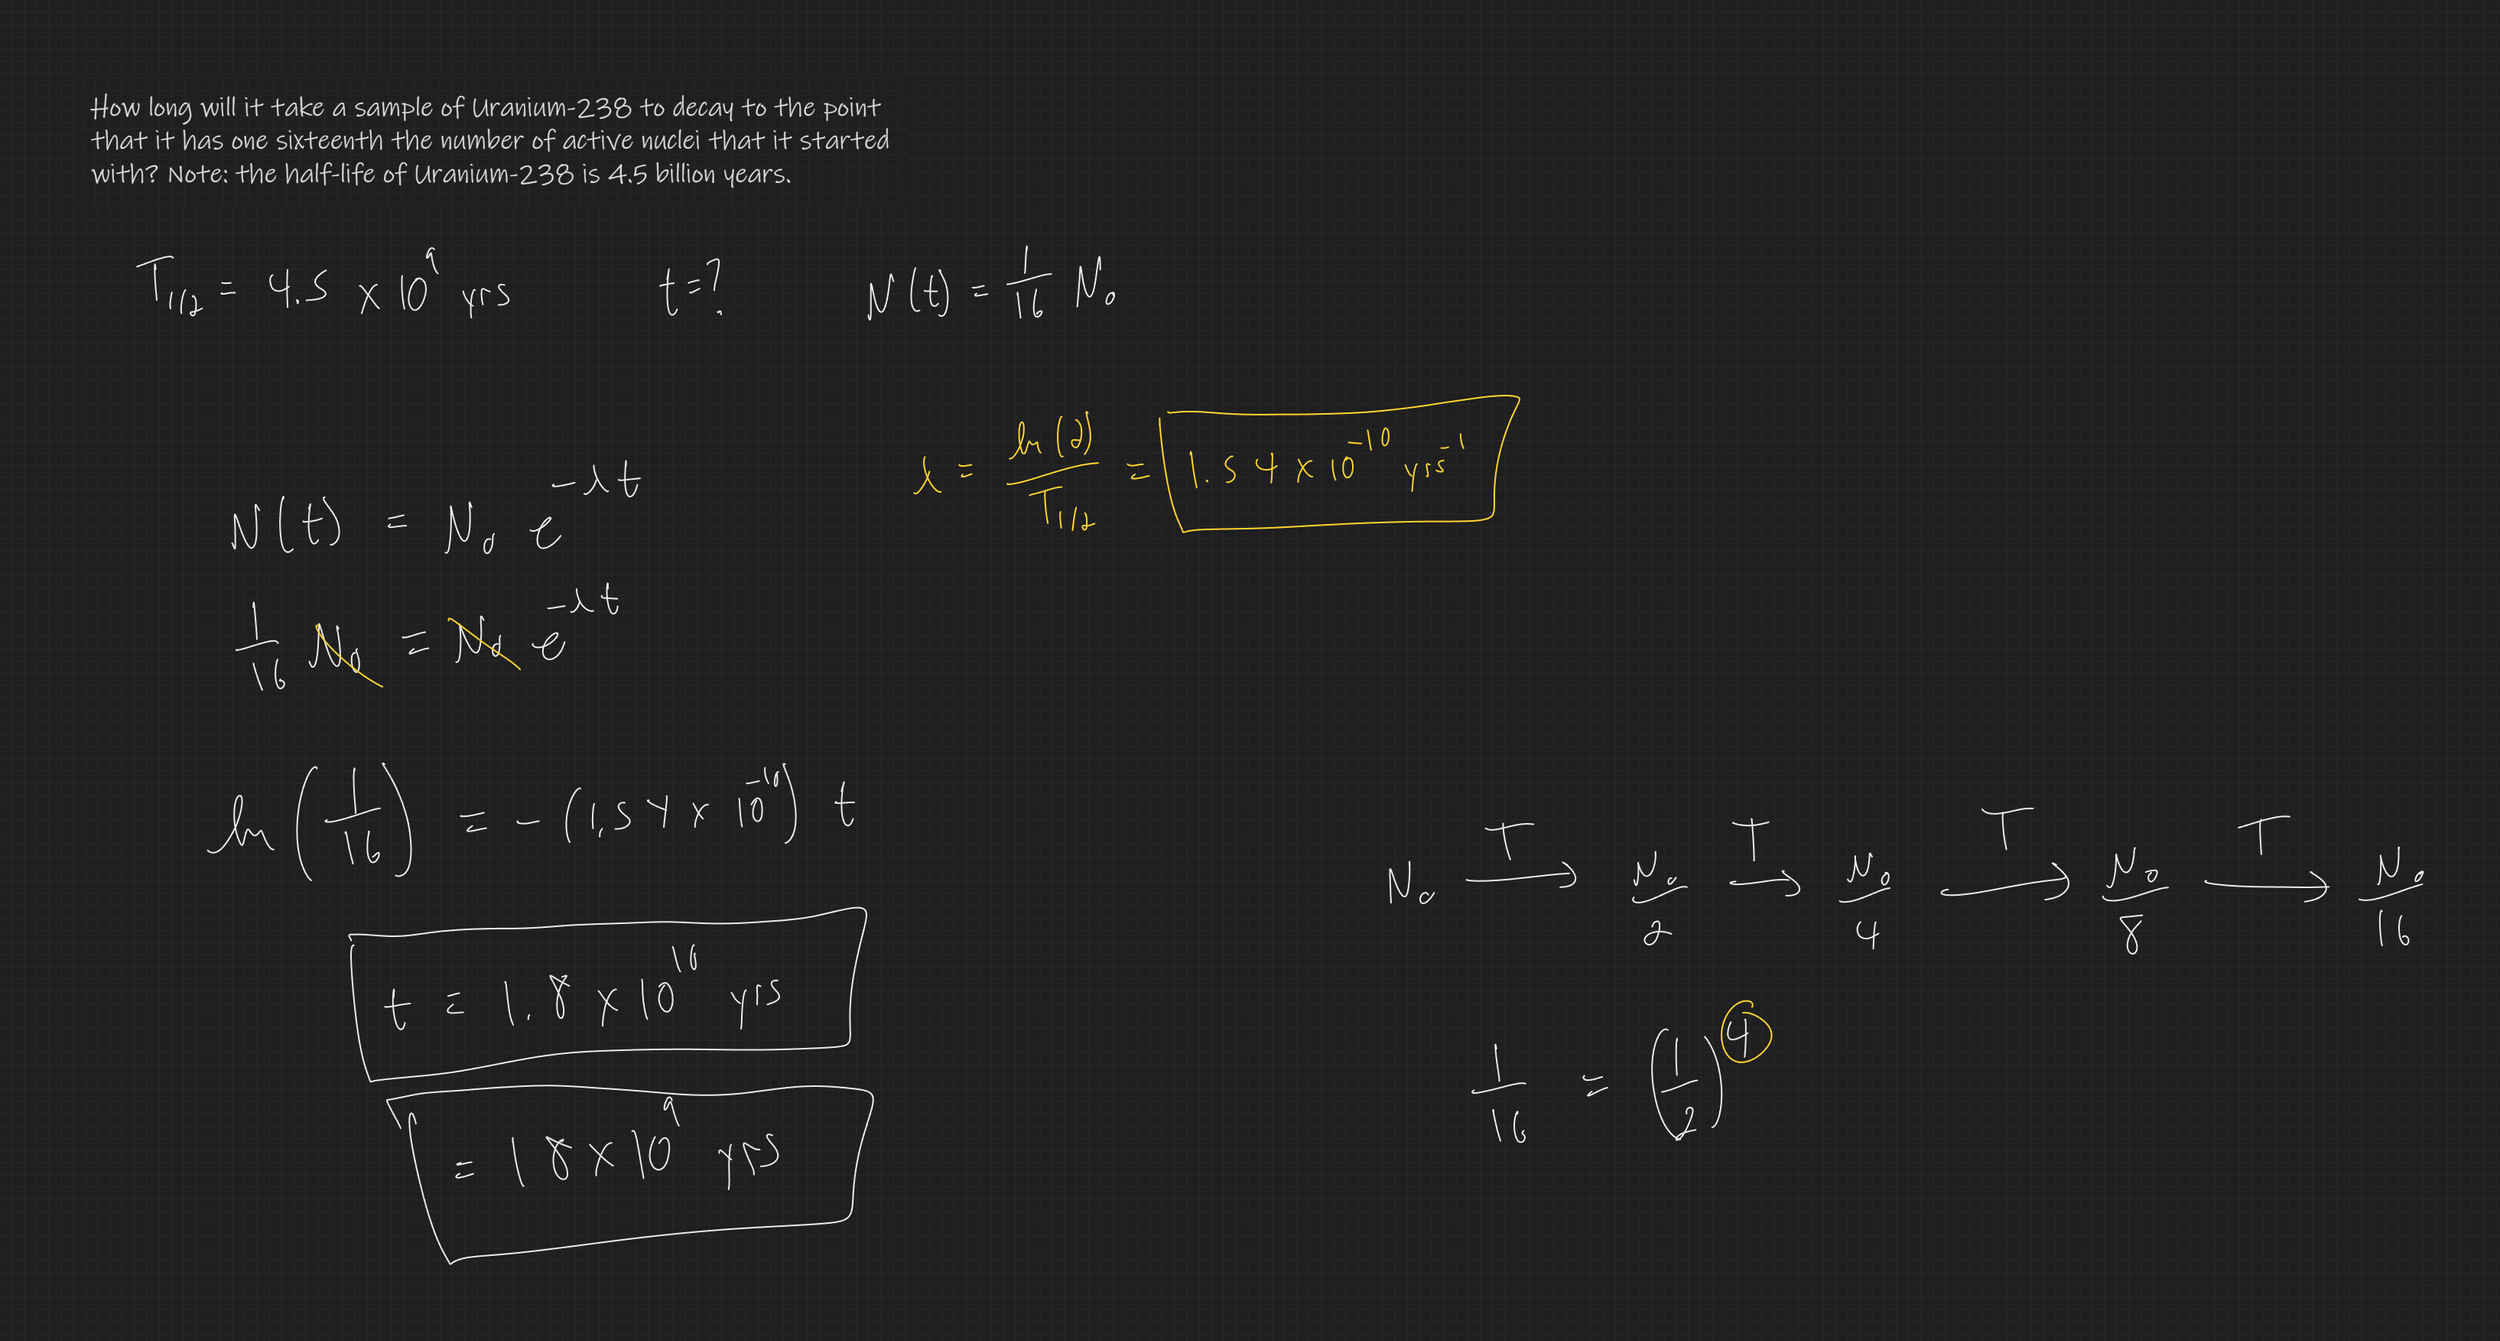 How long will it take a sample of Uranium-238 to decay to the point
that it has one sixteenth the number of active nuclei that it started
with? Note: the half-life of Uranium-238 is 4.5 billion years.
T₁/₂ = 4.5 × 10⁹ yrs t = ? N(t) = 1/16 N₀
λ = ln(2)/T₁/₂ = 1.54 × 10⁻¹⁰ yrs⁻¹
N(t) = N₀ e^(-λt)
1/16 N₀ = N₀ e^(-λt)
ln(1/16) = -(1.54 × 10⁻¹⁰) t
t = 1.8 × 10¹⁰ yrs
= 18 × 10⁹ yrs
N₀ →T N₀/2 →T N₀/4 →T N₀/8 →T N₀/16
1/16 = (1/2)⁴